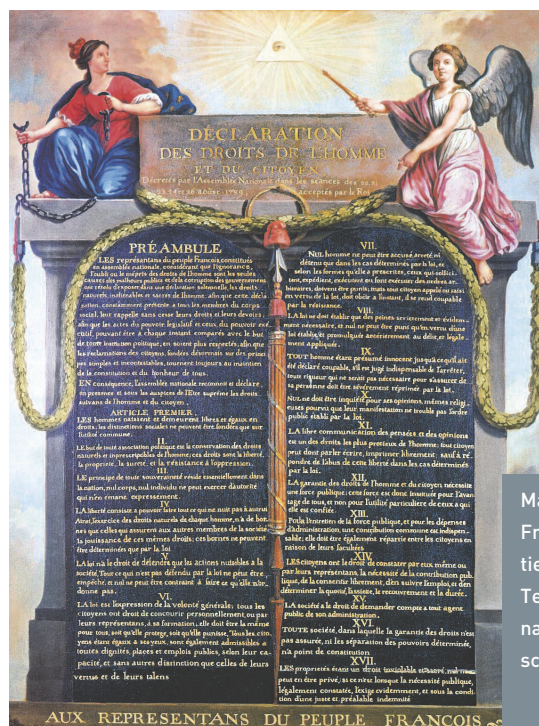 DÉCLARATION
DES DROITS DE L'HOMME
ET DU CITOYEN
Décretés par l'Assemblé Nationale dans les séances des 20. 21
acceptés par le Roi
PRÉAMBULE
LES représentans du peuple François, constitués
en assemblée nationale, considérant que l'ignorance,
l'oubli ou le mépris des droits de l'homme sont les seules
causes des malheurs publics et de la corruption des gouvernemens
ont résolu d'exposer dans une déclaration solemnelle, les droits
naturels, inaliénables et sacrés de l'homme: afin que cette décla-
ration, constamment présente a tous les membres du corps
social, leur rappelle sans cesse leurs droits et leurs devoirs;
afin que les actes du pouvoir législatif et ceux du pouvoir exé-
cutif, pouvant être a chaque instant comparés avec le but
de toute institution politique, en soient plus respectés; afin que
les réclamations des citoyens, fondées désormais sur des princi-
pes simples et incontestables, tournent toujours au maintien
de la constitution et du bonheur de tous.
EN conséquence, l'assemblée nationale reconnoit et déclare,
en presence et sous les auspices de l'Etre suprême les droits
suivans de l'homme et du citoyen.
ARTICLE PREMIER.
LES hommes naissent et demeurent libres et égaux en
droits, les distinctions sociales ne peuvent être fondées que sur
l'utilité commune.
II.
LE but de toute association politique est la conservation des droits
naturels et imprescriptibles de l'homme; ces droits sont la liberté,
la propriété, la sureté, et la résistance à l'oppression.
III.
LE principe de toute souveraineté réside essentiellement dans
la nation, nul corps, nul individu ne peut exercer d'autorité
qui n'en émane expressement.
IV.
LA liberté consiste a pouvoir faire tout ce qui ne nuit pas à autrui
Ainsi, l'exercice des droits naturels de chaque homme, n'a de bor-
nes que celles qui assurent aux autres membres de la société
la jouissance de ces mêmes droits; ces bornes ne peuvent
être déterminées que par la loi
V.
LA loi n'a le droit de défendre que les actions nuisibles a la
société. Tout ce qui n'est pas défendu par la loi ne peut être
empêché, et nul ne peut être contraint à faire ce qu'elle n'or-
donne pas.
VI.
LA loi est l'expression de la volonté générale; tous les
citoyens ont droit de concourir personnellement, ou par
leurs représentans, à sa formation; elle doit être la même
pour tous, soit qu'elle protege, soit qu'elle punisse. Tous les cito-
yens étant égaux à ses yeux, sont également admissibles a
toutes dignités, places et emplois publics, selon leur ca-
pacité, et sans autres distinction que celles de leurs
vertus et de leurs talens
VII.
NUL homme ne peut être accusé, arreté ni
détenu que dans les cas déterminés par la loi, et
selon les formes qu'elle a prescrites, ceux qui sollici-
tent, expédient, exécutent ou font exécuter des ordres ar-
bitraires, doivent être punis; mais tout citoyen appelé ou saisi
en vertu de la loi, doit obéir a l'instant, il se rend coupable
par la résistance.
VIII.
LA loi ne doit établir que des peines strictement et évidem-
ment nécessaire, et nul ne peut être puni qu'en vertu d'une
loi établie et promulguée antérierement au délit, et légale-
ment appliquée.
IX.
TOUT homme étant présumé innocent jusqu'a ce qu'il ait
été déclaré coupable, s'il est jugé indispensable de l'arrêter,
toute rigueur qui ne serait pas nécessaire pour s'assurer de
sa personne doit être sévèrement réprimée par la loi.
X.
NUL ne doit être inquiété pour ses opinions, mêmes religi-
euses pourvu que leur manifestation ne trouble pas l'ordre
public établi par la loi.
XI.
LA libre communication des pensées et des opinions
est un des droits les plus precieux de l'homme: tout citoyen
peut dont parler écrire, imprimer librement; sauf à ré-
pondre de l'abus de cette liberté dans les cas déterminés
par la loi.
XII.
LA garantie des droits de l'homme et du citoyen nécessite
une force publique: cette force est donc instituée pour l'avan-
tage de tous, et non pour l'utilité particuliere de ceux a qui
elle est confiée.
XIII.
POUR l'entretien de la force publique, et pour les dépenses
d'administration, une contribution commune est indispen-
sable; elle doit être également répartie entre les citoyens en
raison de leurs facultées
XIV.
LES citoyens ont le droit de constater par eux même ou
par leurs représentans, la nécessité de la contribution pub-
lique, de la consentir librement, d'en suivre l'emploi, et d'en
déterminer la quotité, l'assiette, le recouvrement et la durée.
XV.
LA société a le droit de demander compte a tout agent
public de son administration.
XVI.
TOUTE société, dans laquelle la garantie des droits n'est
pas assurée, ni la séparation des pouvoirs déterminée,
n'a point de constitution
XVII.
LES propriétés étant un droit inviolable et sacré, nul ne
peut en être privé, si ce n'est lorsque la nécessité publique,
légalement constatée, l'exige evidemment, et sous la condi-
tion d'une juste et préalable indemnité
AUX REPRESENTANS DU PEUPLE FRANCOIS